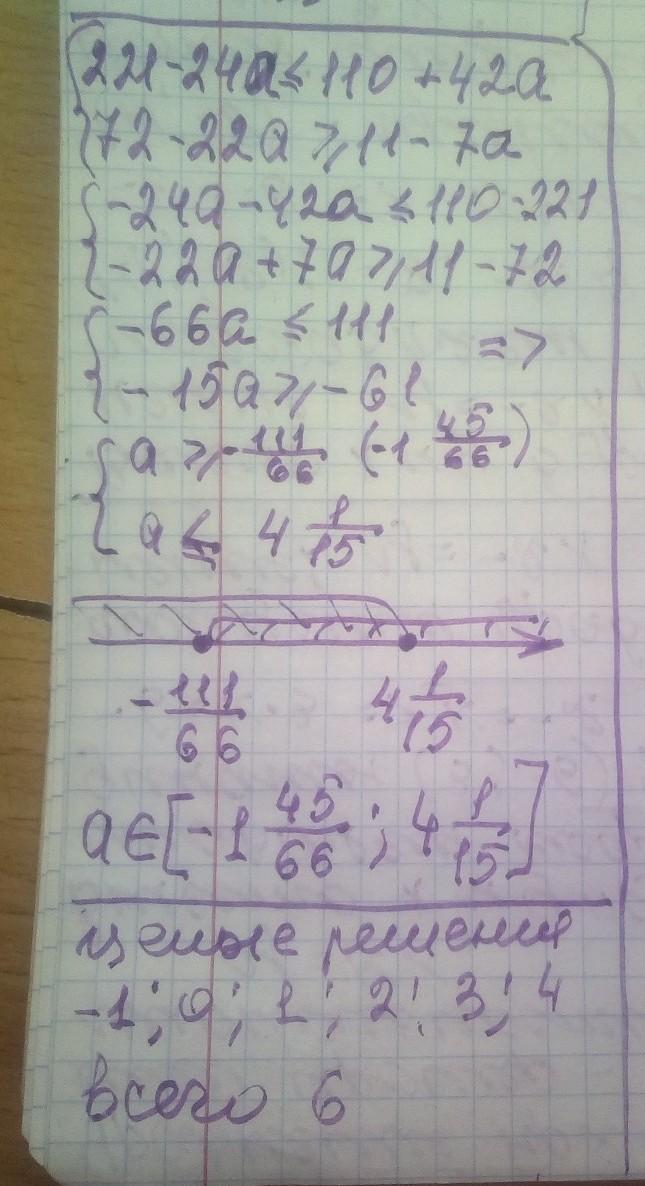 221-24a ≤ 110 + 42a
72 - 22a ≥ 11 - 7a
-24a - 42a ≤ 110 - 221
-22a + 7a ≥ 11 - 72
-66a ≤ 111 =>
-15a ≥ -61
a ≥ -111/66 (-1 45/66)
a ≤ 4 1/15
-111/66 4 1/15
a ∈ [-1 45/66 ; 4 1/15]
целые решения
-1; 0; 1; 2; 3; 4
всего 6